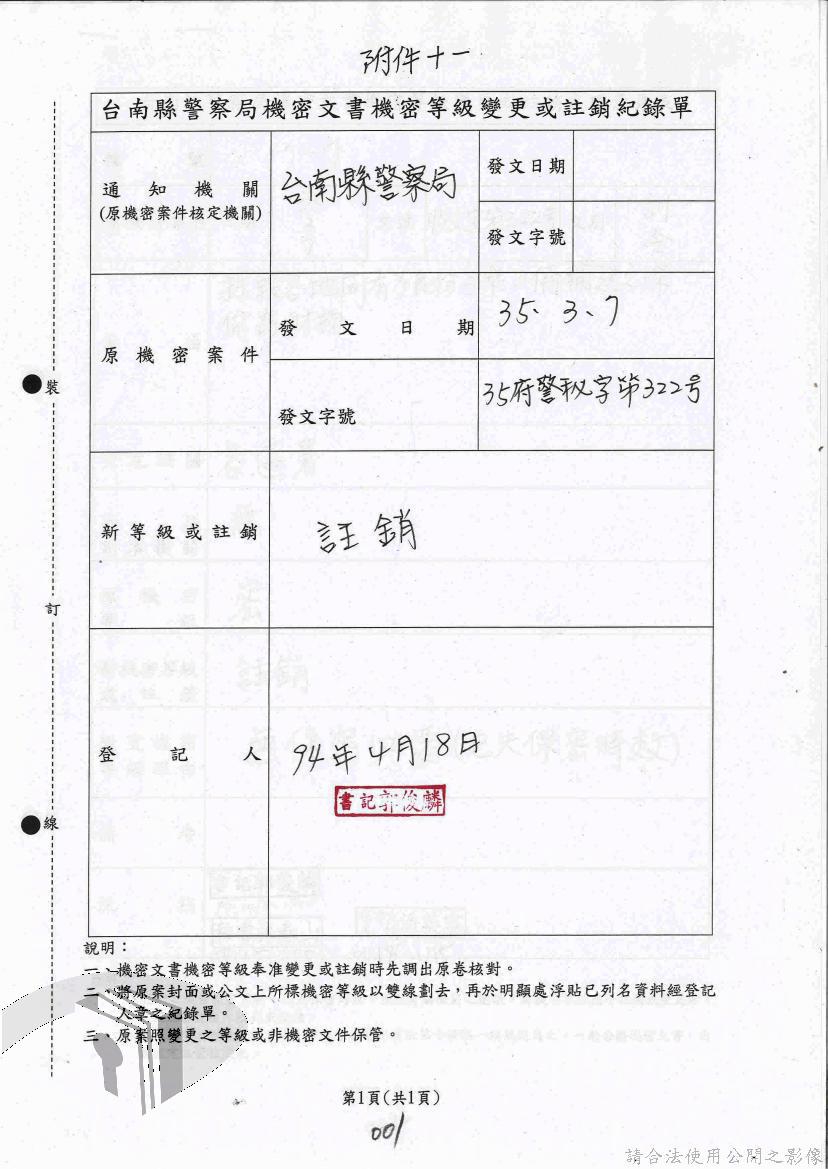 附件十一
台南縣警察局機密文書機密等級變更或註銷紀錄單
通知機關
(原機密案件核定機關)
台南縣警察局
發文日期
發文字號
原機密案件
發文日期
35.3.7
發文字號
35府警秘字第322号
新等級或註銷
註銷
登記人
94年4月18日
書記郭俊麟
裝
訂
線
說明：
一、機密文書機密等級奉准變更或註銷時先調出原卷核對。
二、將原案封面或公文上所標機密等級以雙線劃去，再於明顯處浮貼已列名資料經登記
人章之紀錄單。
三、原案照變更之等級或非機密文件保管。
第1頁(共1頁)
001
請合法使用公開之影像